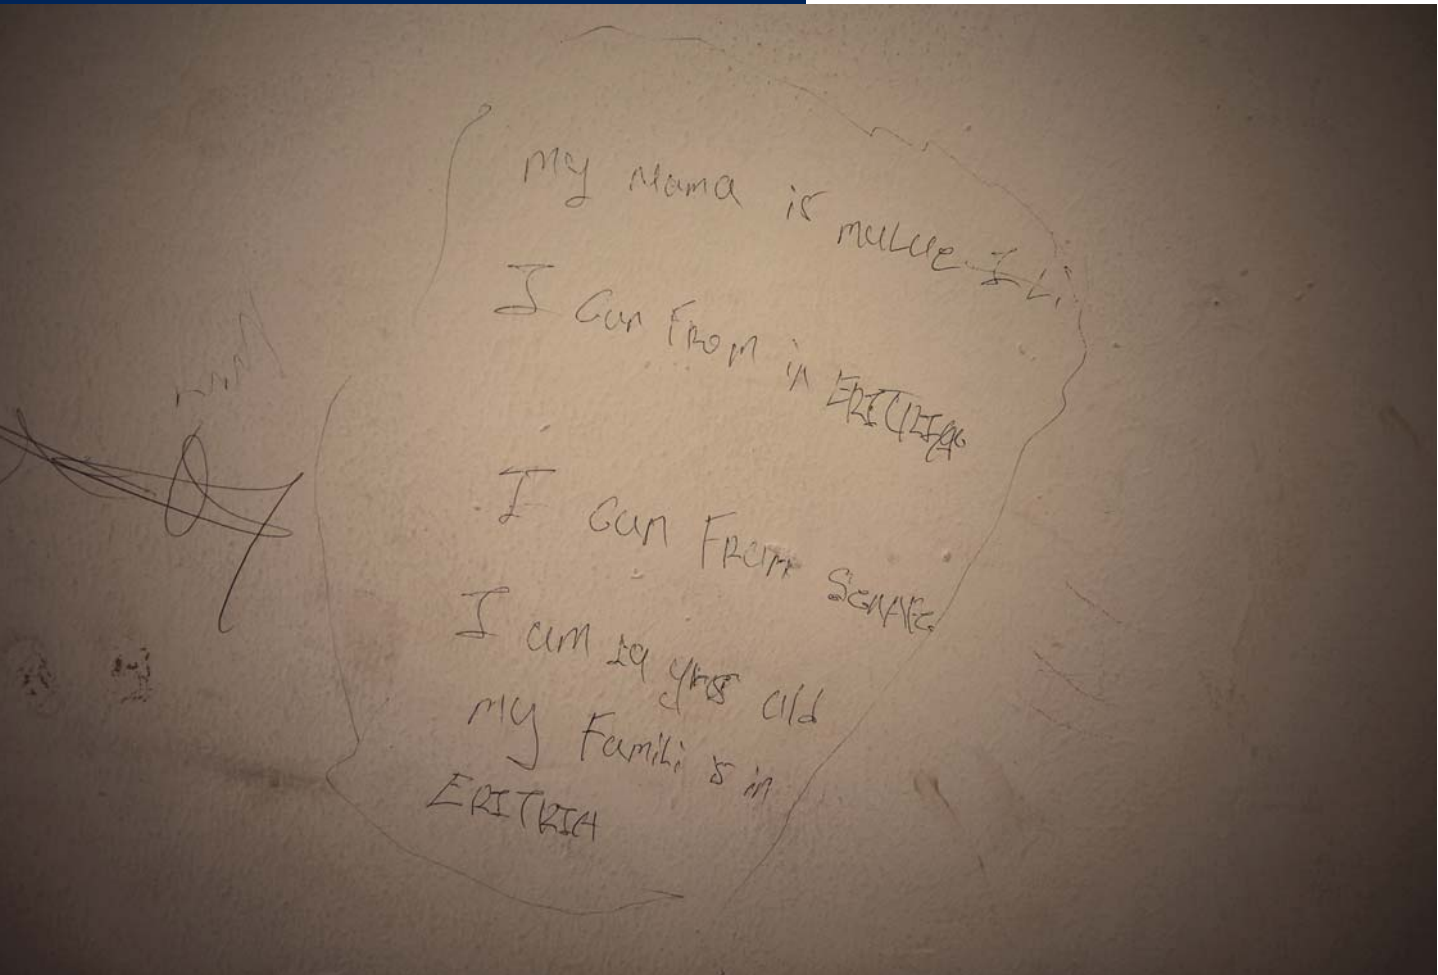 My Nama is mulue
I Cam From in ERITRIA
I Cam From SENAFE
I am 19 yrs old
My Famili is in
ERITRIA